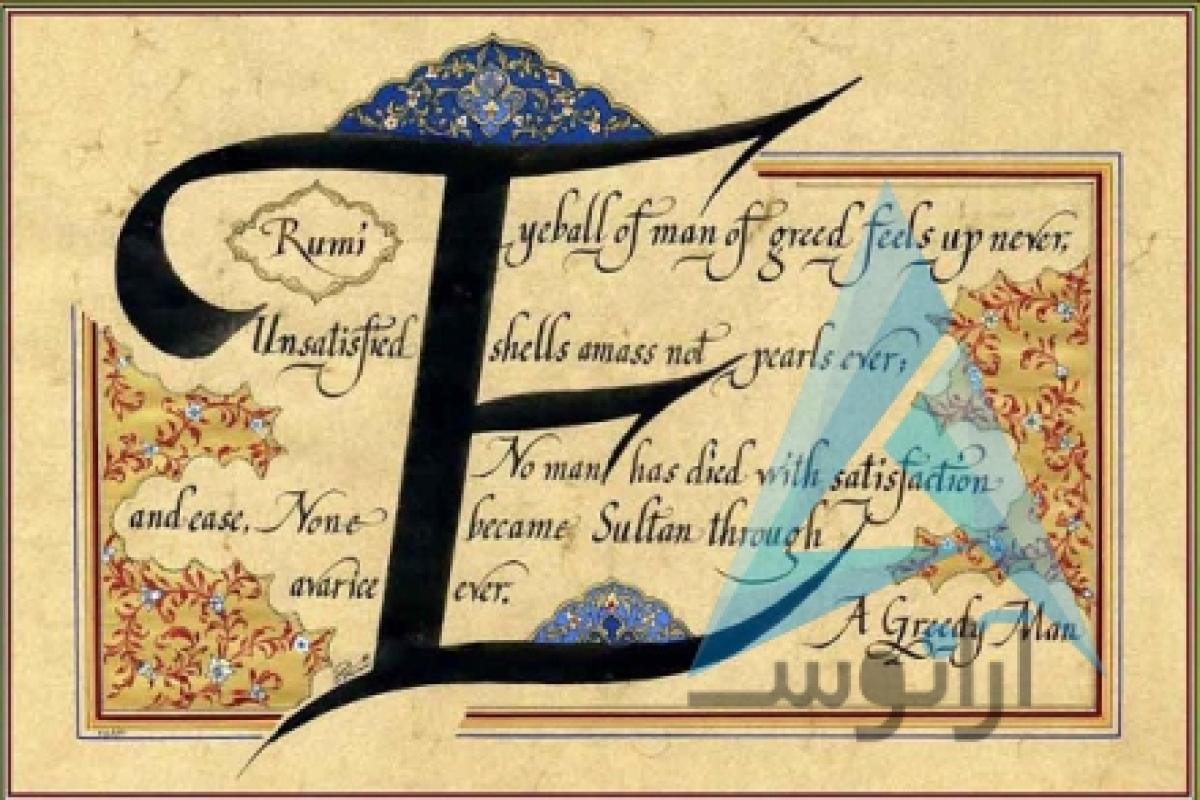 Rumi
Eyeball of man of greed feels up never.
Unsatisfied shells amass not pearls ever;
No man has died with satisfaction
and ease. None became Sultan through
avarice ever.
A Greedy Man
آراتوس